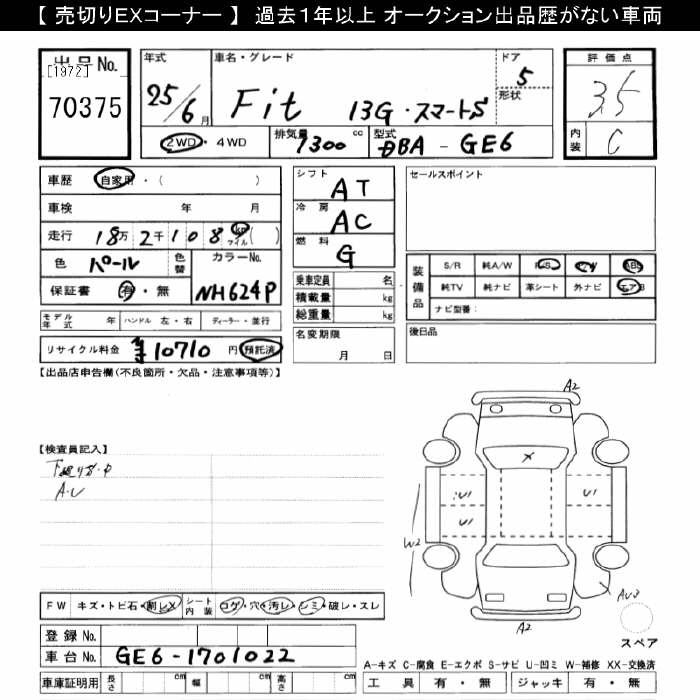 【 売切りEXコーナー 】 過去1年以上 オークション出品歴がない車両
出品No.
[1972]
70375
年式
25/6月
車名・グレード
Fit 13G・スマートS
ドア
5
形状
2WD・4WD
排気量
1300 cc
型式
DBA - GE6
評価点
3.5
内装
C
車歴 自家用・( )
車検 年 月
走行 18万2千108 km マイル( )
色 パール
色替
カラーNo.
NH624P
保証書 有・無
モデル年式 年 ハンドル 左・右 ディーラー・並行
リサイクル料金 ¥10710 円 預託済
シフト
AT
冷房
AC
燃料
G
乗車定員 名
積載量 kg
総重量 kg
名変期限
月 日
セールスポイント
装備品
S/R 純A/W P/S P/W ABS
純TV 純ナビ 革シート 外ナビ エアB
ナビ型番:
後日品
【出品店申告欄(不良箇所・欠品・注意事項等)】
【検査員記入】
A・U
A2
X
U1
U1
U1
W2
AU3
A2
スペア
FW キズ・トビ石・割レX
シート内装 コゲ・穴・汚レ・シミ・破レ・スレ
登録 No.
車台No. GE6-1701022
車庫証明用 長さ cm 幅 cm 高さ cm
A-キズ C-腐食 E-エクボ S-サビ U-凹ミ W-補修 XX-交換済
工具 有・無 ジャッキ 有・無